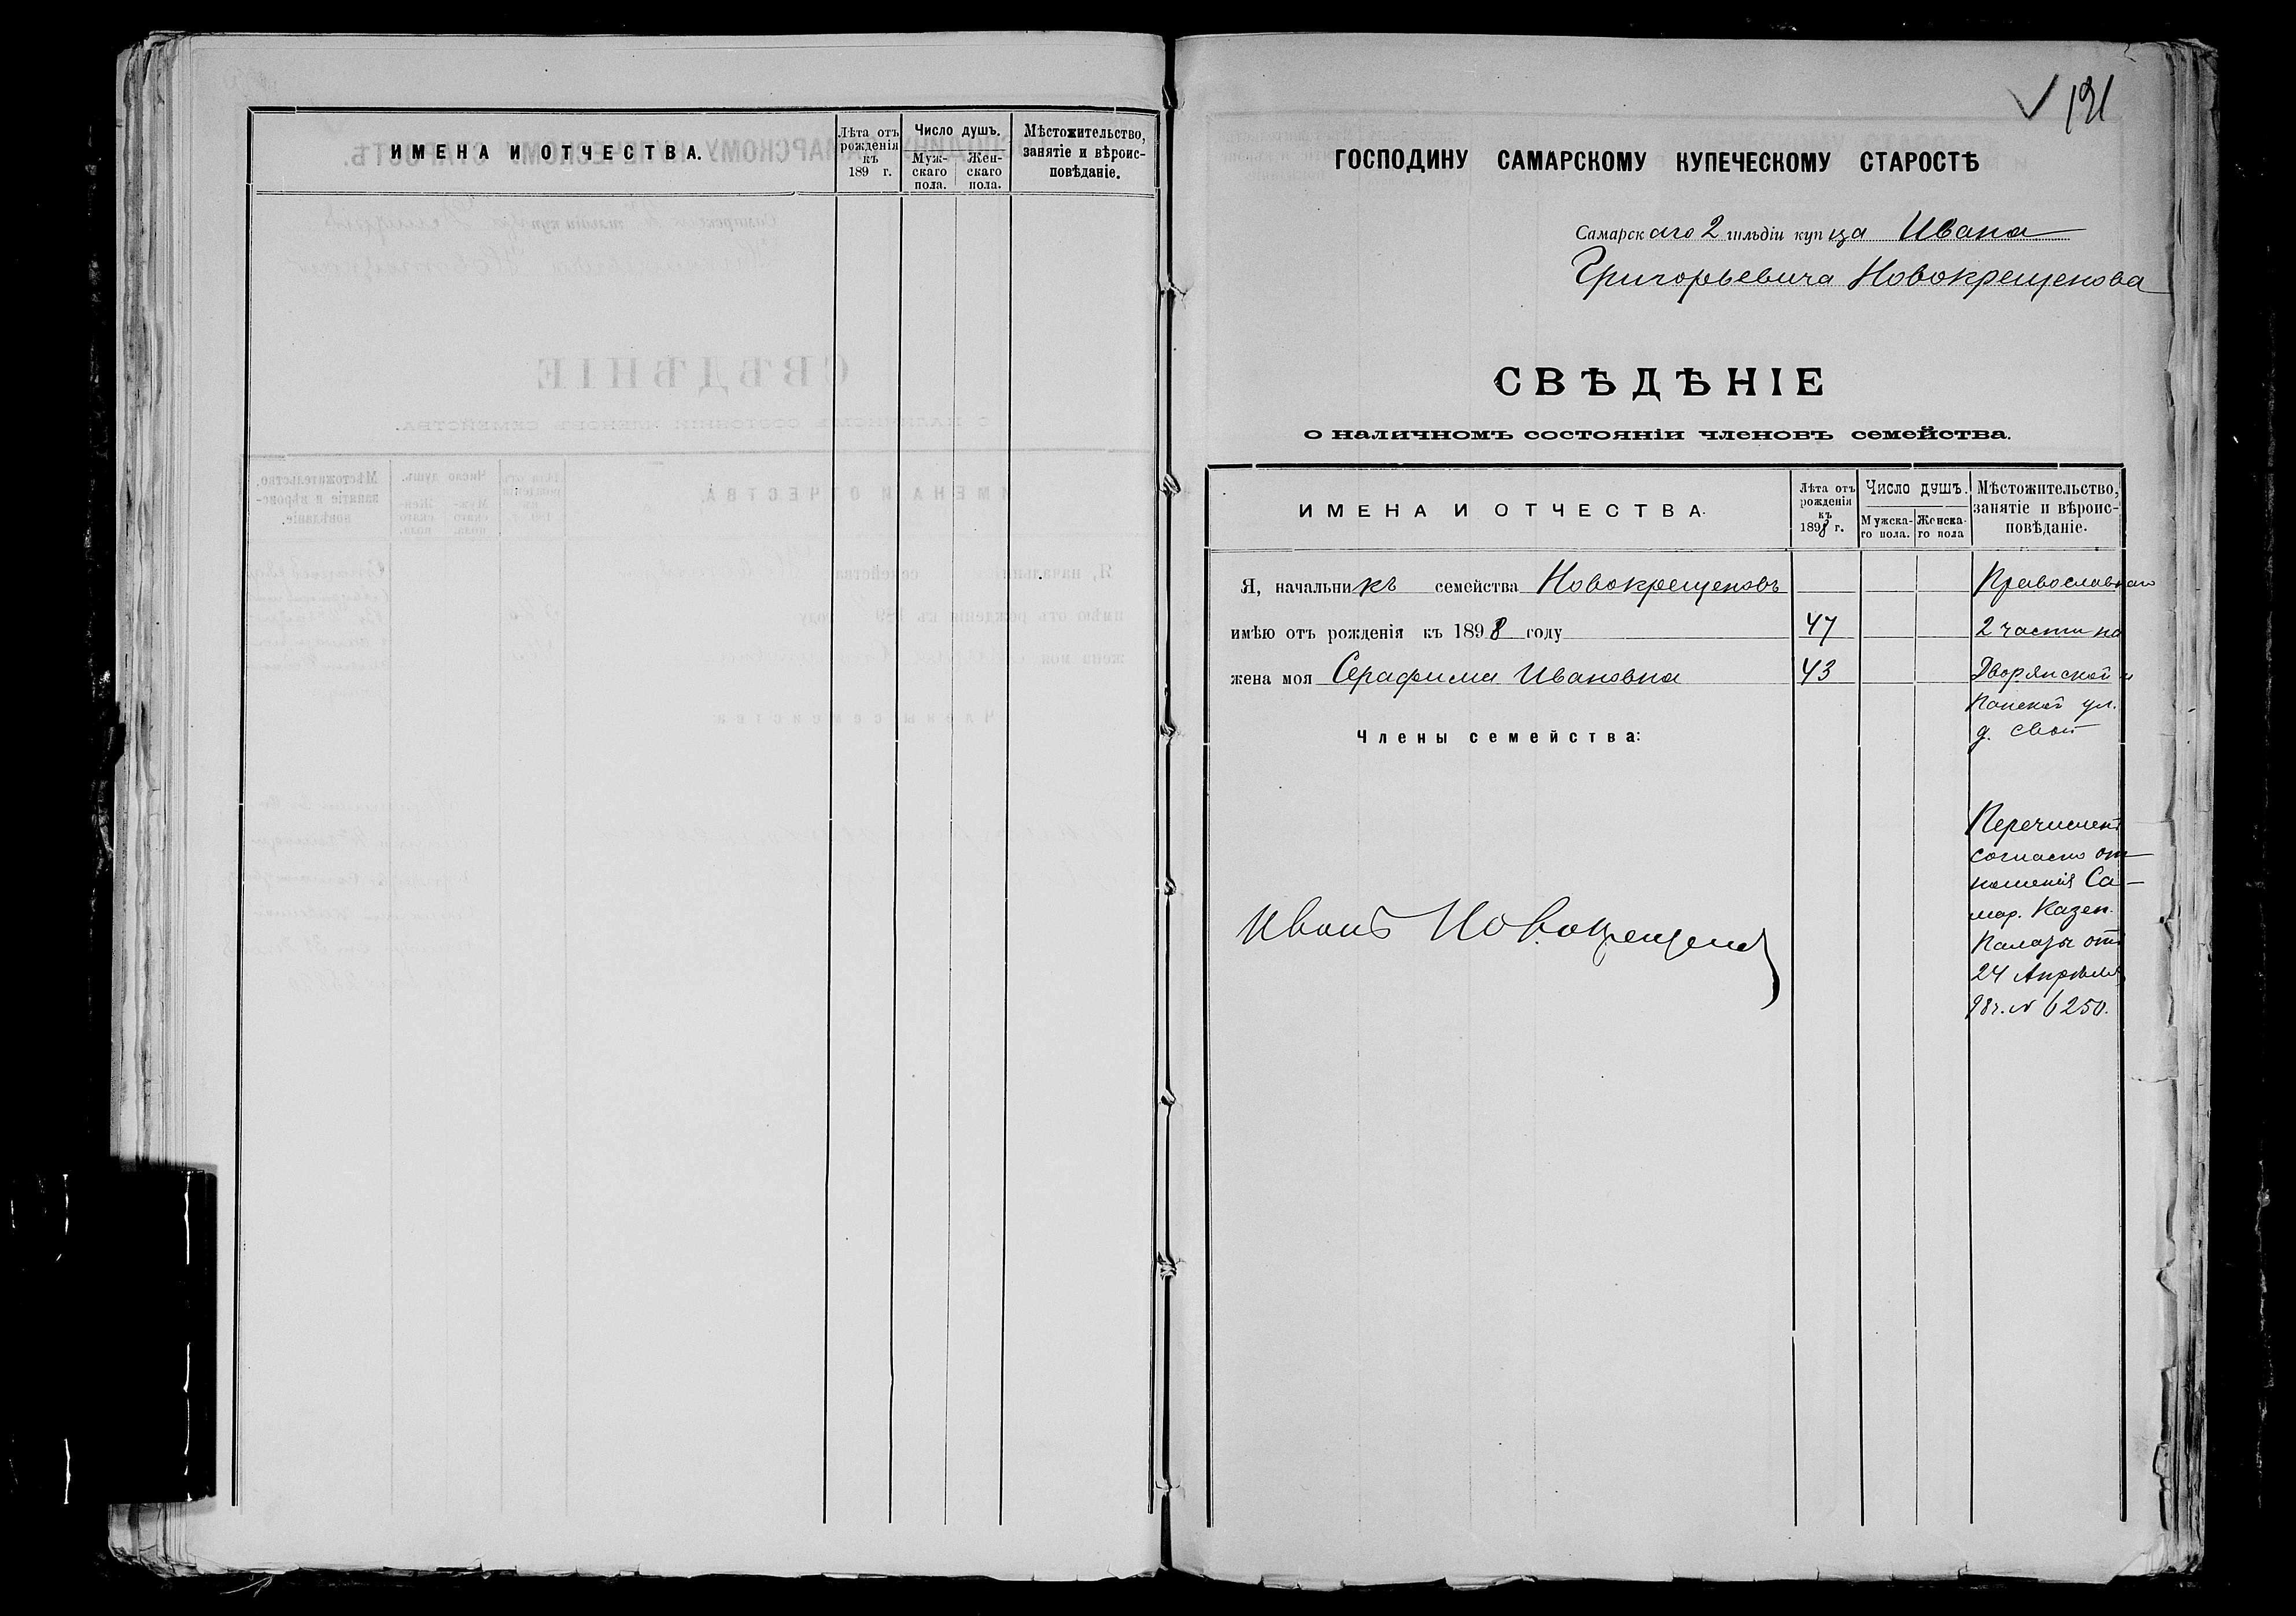 ИМЕНА И ОТЧЕСТВА.
Лѣта отъ рожденія къ 189 г.
Число душъ.
Муж-скаго пола.
Жен-скаго пола.
Мѣстожительство, занятіе и вѣроис-повѣданіе.
191
ГОСПОДИНУ САМАРСКОМУ КУПЕЧЕСКОМУ СТАРОСТѢ
Самарскаго 2 гильдіи купца Ивана
Григорьевича Новокрещенова
СВѢДѢНІЕ
о наличномъ состояніи членовъ семейства.
ИМЕНА И ОТЧЕСТВА.
Лѣта отъ рожденія къ 1898 г.
Число душъ.
Мужска-го пола.
Женска-го пола
Мѣстожительство, занятіе и вѣроис-повѣданіе.
Я, начальникъ семейства Новокрещеновъ
Православнаго
имѣю отъ рожденія къ 1898 году 47 2 части на
жена моя Серафима Ивановна 43 Дворянской и
Панской ул.
Члены семейства: д. свой
Перечисленъ
согласно от-
ношенія Са-
мар. Казен.
Палаты отъ
Иванъ Новокрещеновъ
24 Апрѣля
98 г. № 6250.